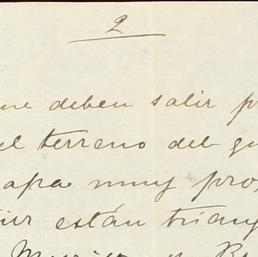 2
ue deben salir p
el terreno del gu
apa muy pro
están triang
y